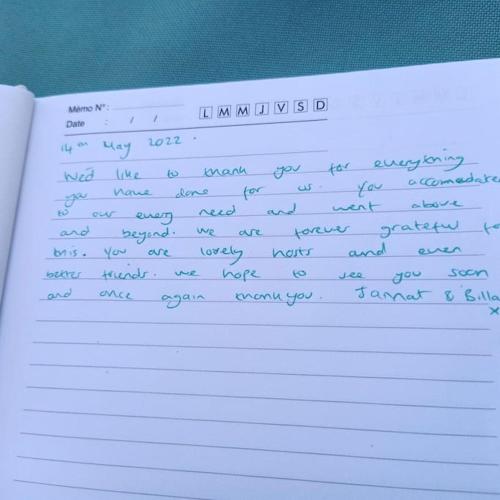 Mémo N° :
Date : / / L M M J V S D
14th May 2022.
We'd like to thank you for everything
you have done for us. You accomodate
to our every need and went above
and beyond. We are forever grateful fo
this. You are lovely hosts and even
better friends. We hope to see you soon
and once again thankyou. Jannat & Billa
x